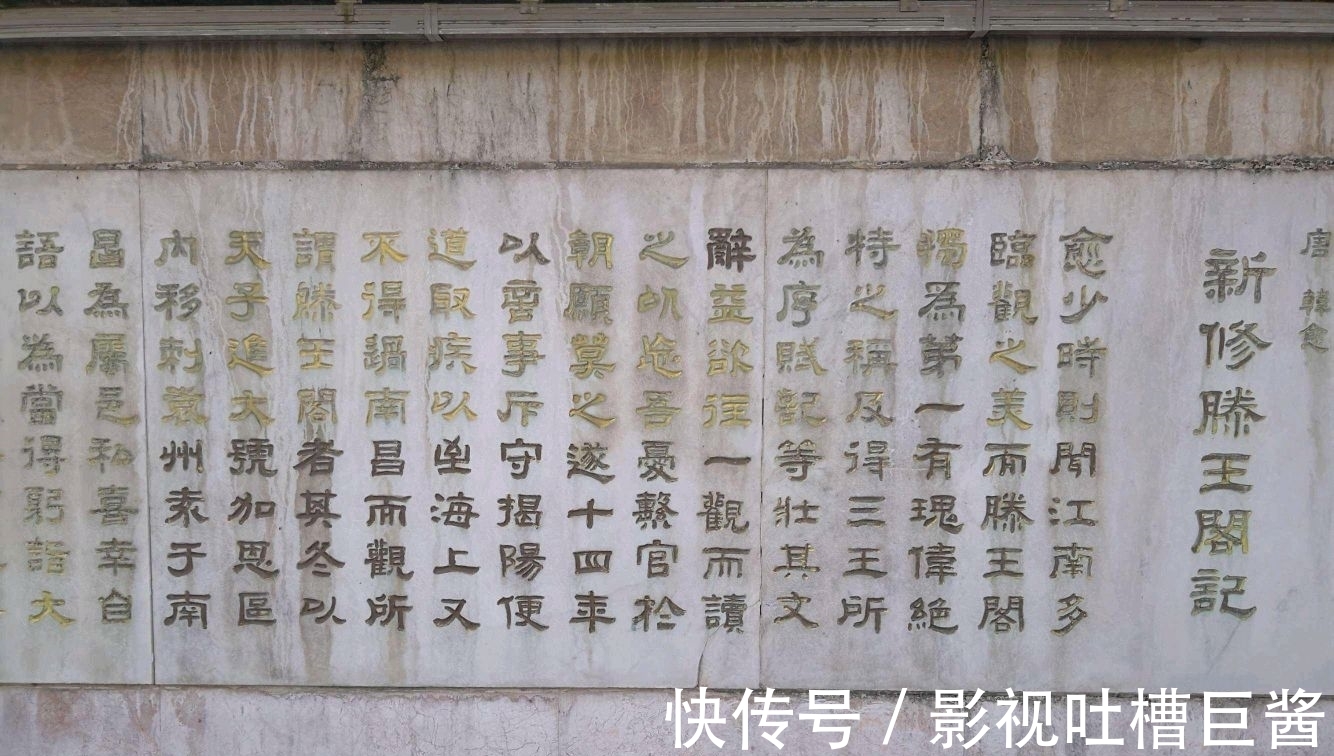 唐 韓愈
新修滕王閣記
愈少時則聞江南多
臨觀之美而滕王閣
獨為第一有瑰偉絕
特之稱及得三王所
為序賦記等壯其文
辭益欲往一觀而讀
之以忘吾憂繫官於
朝願莫之遂十四年
以言事斥守揭陽便
道取疾以至海上又
不得過南昌而觀所
謂滕王閣者其冬以
天子進大號加恩區
內移刺袁州袁于南
昌為屬邑私喜幸自
語以為當得躬詣大
快传号 / 影视吐槽巨酱